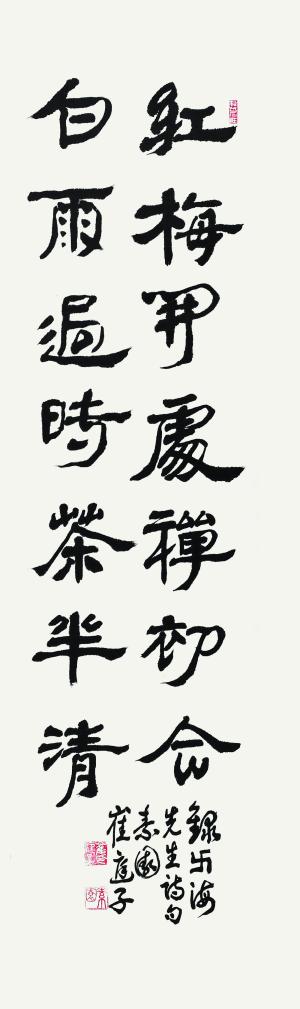 紅梅開處禪初合
白雨過時茶半清
錄卍海
先生詩句
素園
崔庭子